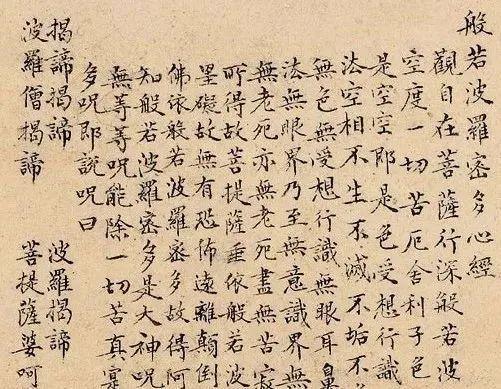 般若波羅密多心經
觀自在菩薩行深般若波
空度一切苦厄舍利子色
是空空即是色受想行識
法空相不生不滅不垢不
無色無受想行識無眼耳鼻
法無眼界乃至無意識界無
無老死亦無老死盡無苦寂
所得故菩提薩埵依般若波
罣礙故無有恐怖遠離顛倒
佛依般若波羅密多故得阿
知般若波羅密多是大神呪
無等等呪能除一切苦真實
多呪即說呪曰
揭諦揭諦 波羅揭諦
波羅僧揭諦 菩提薩婆呵